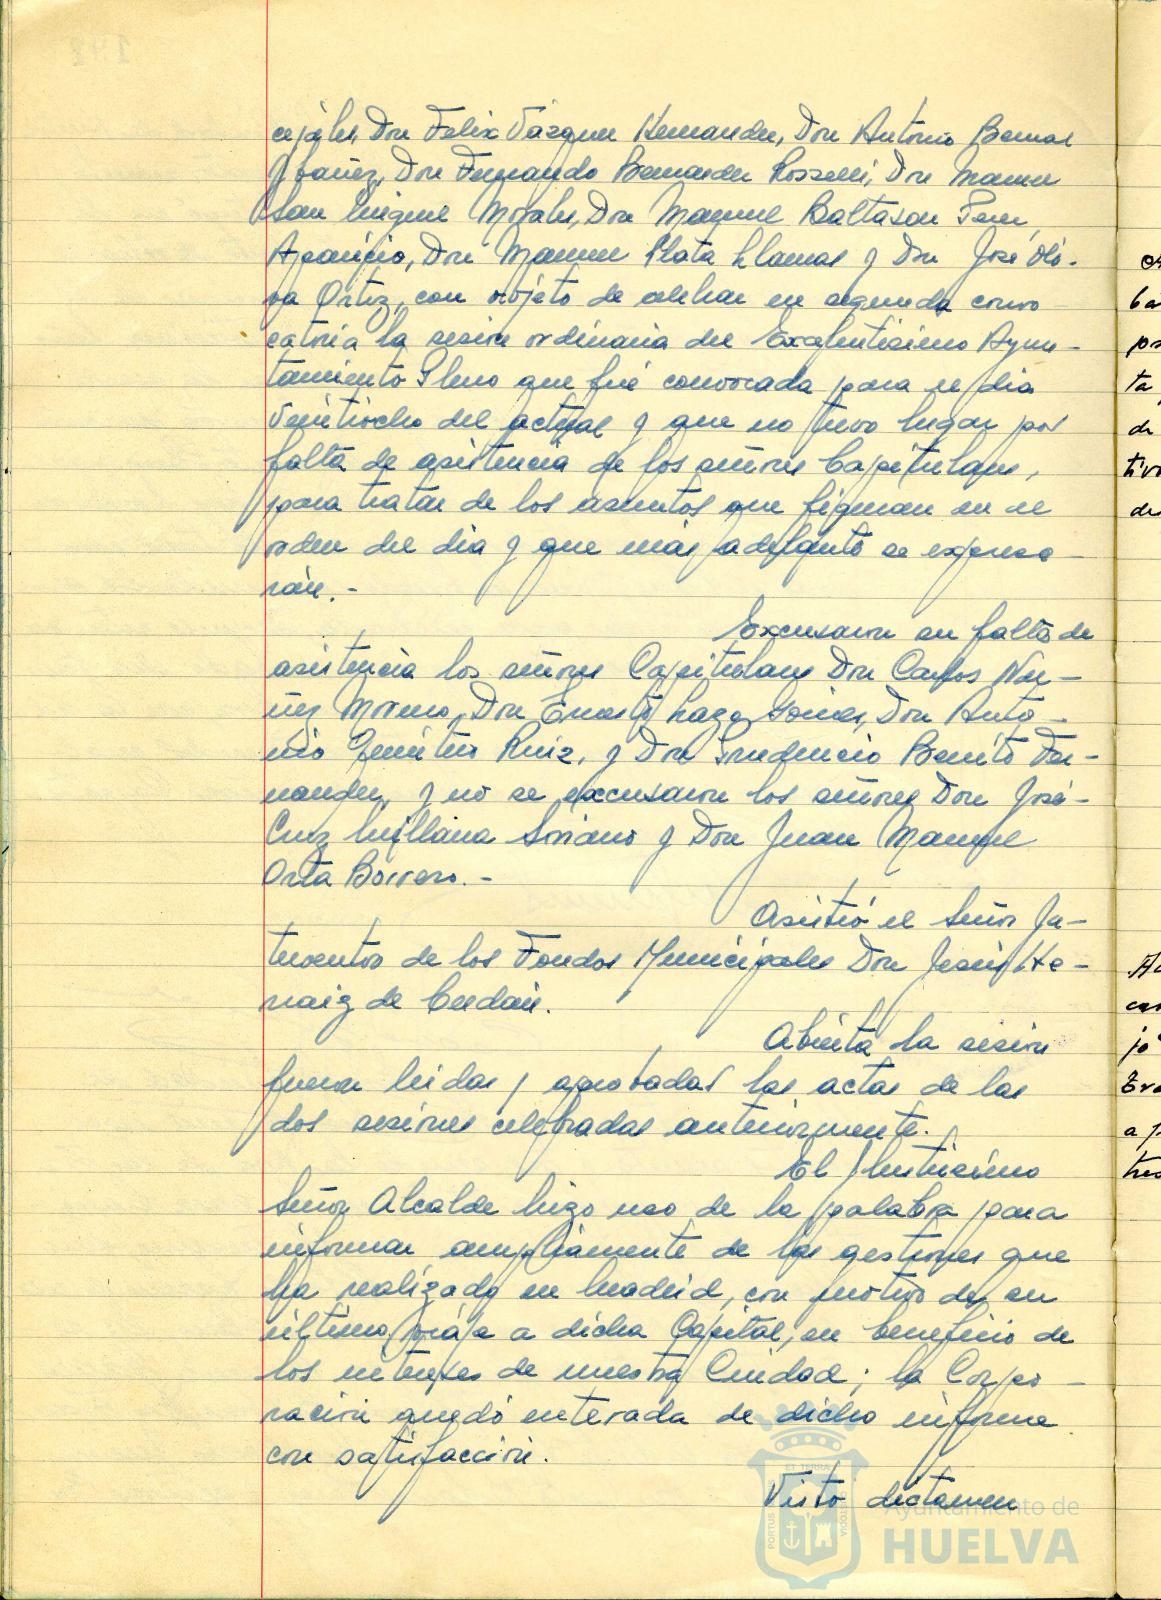 cejales, Don Felix Vázquez Hernandez, Don Antonio Bernal
Ybañez, Don Fernando Bernardez Rosselli, Don Manuel
San Miguel Morales, Don Manuel Baltasar
Aparicio, Don Manuel Plata Llamas y Don José Oli-
va Ortiz, con objeto de celebrar en segunda convo
catoria la sesión ordinaria del Excelentísimo Ayun-
tamiento Pleno que fué convocada para el dia
veintiocho del actual y que no tuvo lugar por
falta de asistencia de los señores Capitulares,
para tratar de los asuntos que figuran en el
orden del dia y que más adelante se expresa
rán.-
Excusaron su falta de
asistencia los señores Capitulares Don Carlos Nú-
ñez Moreno, Don Ernesto Lazo Don Anto-
nio Ruiz, y Don Prudencio Benito Fer-
nandez, y no se excusaron los señores Don José
Cruz Millana Soriano y Don Juan Manuel
Orta Borrero.-
Asistió el Señor In-
terventor de los Fondos Municipales Don Jesús He-
raiz de
Abierta la sesión
fueron leidas y aprobadas las actas de las
dos sesiones celebradas anteriormente.
El Ilustrísimo
Señor Alcalde hizo uso de la palabra para
informar ampliamente de las gestiones que
ha realizado en Madrid, con motivo de su
último viaje a dicha Capital, en beneficio de
los intereses de nuestra Ciudad; la Corpo
ración quedó enterada de dicho informe
con satisfacción.
Visto dictamen
Ayuntamiento de
HUELVA